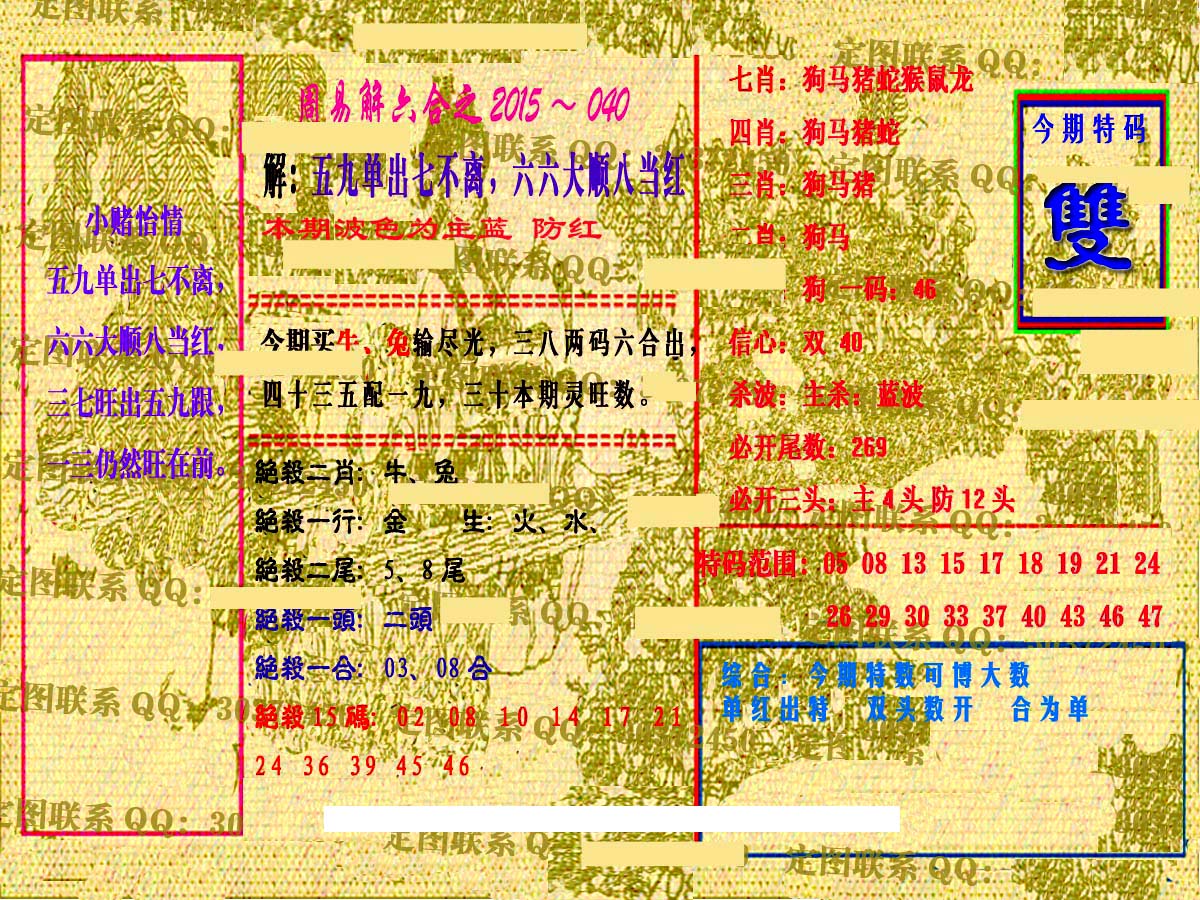 周易解六合之 2015 ~ 040
解：五九单出七不离，六六大顺八当红
本期波色为主蓝 防红
小赌怡情
五九单出七不离，
六六大顺八当红，
三七旺出五九跟，
一三仍然旺在前。
今期买牛、兔输尽光，三八两码六合出，
四十三五配一九，三十本期灵旺数。
絕殺二肖：牛、兔
絕殺一行：金 生：火、水、
絕殺二尾：5、8 尾
絕殺一頭：二頭
絕殺一合：03、08 合
絕殺 15 碼：02 08 10 14 17 21
24 36 39 45 46
七肖：狗马猪蛇猴鼠龙
四肖：狗马猪蛇
三肖：狗马猪
二肖：狗马
狗 一码：46
信心：双 40
杀波：主杀：蓝波
必开尾数：269
必开三头：主 4 头 防 12 头
今期特码
雙
特码范围：05 08 13 15 17 18 19 21 24
26 29 30 33 37 40 43 46 47
综合：今期特数可博大数
单红出特 双头数开 合为单
定图联系 QQ：